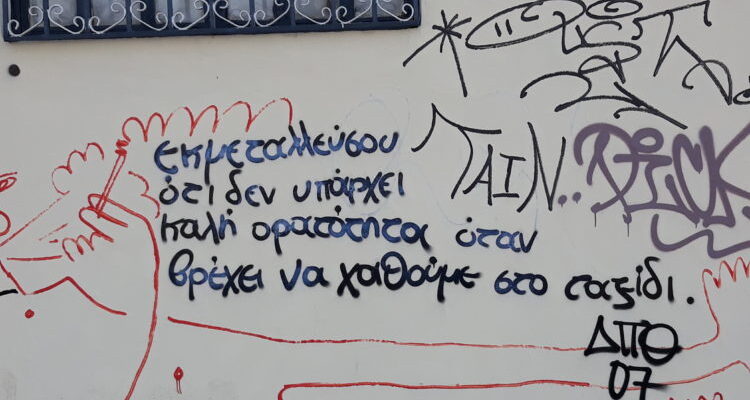 εκμεταλλεύσου
ότι δεν υπάρχει
καλή ορατότητα όταν
βρέχει να χαθούμε στο ταξίδι.
ΔΠΘ
07